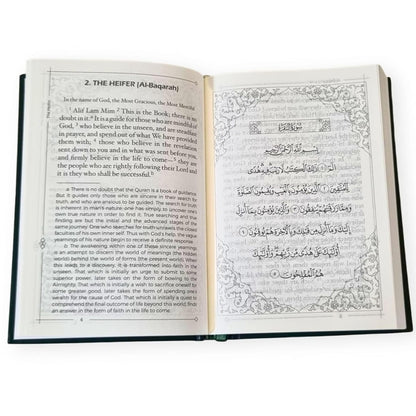 2. THE HEIFER (Al-Baqarah)
In the name of God, the Most Gracious, the Most Merciful
1 Alif Lam Mim 2 This is the Book; there is no
doubt in it.a It is a guide for those who are mindful of
God, 3 who believe in the unseen, and are steadfast
in prayer, and spend out of what We have provided
them with; 4 those who believe in the revelation
sent down to you and in what was sent before you,
and firmly believe in the life to come— 5 they are
the people who are rightly following their Lord and
it is they who shall be successful.
a There is no doubt that the Quran is a book of guidance.
But it guides only those who are sincere in their search for
truth, and who are anxious to be guided. The search for truth
is inherent in man's nature;
own true nature in order to find it. True searching and
finding are but the initial and advanced stages of the
same journey. One who searches for truth unveils the closed
faculties of his own inner self. Thus with God's help, the vague
yearnings of his nature begin to receive a definite response.
The awakening within one of these sincere yearnings
is an attempt to discern the world of meanings (the hidden
world) behind the world of forms (the present world). When
this leads to a discovery, it is transformed into faith in the
unseen. That which is initially an urge to submit to some
superior power, takes later the form of bowing before the
Almighty. That which is initially a wish to sacrifice oneself to
some greater good, later takes the form of spending one's
wealth for the cause of God. That which is initially a quest to
comprehend the final outcome of life beyond this world, finds
an answer in the form of faith in the life to come.
4
سورة البقرة
بسم الله الرحمن الرحيم
الم ١ ذلك الكتاب لا ريب فيه هدى
للمتقين ٢ الذين يؤمنون بالغيب ويقيمون الصلوة
ومما رزقنهم ينفقون ٣ والذين يؤمنون بما أنزل
إليك وما أنزل من قبلك وبالآخرة هم يوقنون ٤
أولئك على هدى من ربهم وأولئك
هم المفلحون ٥